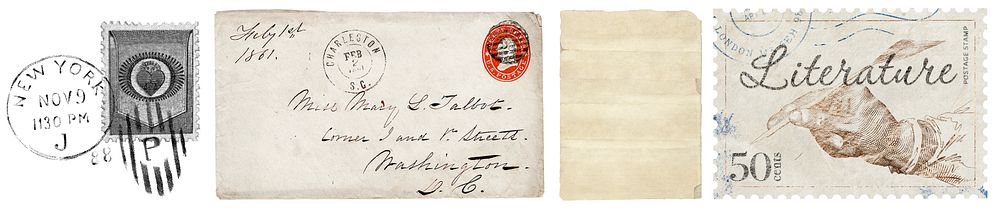 NEW YORK
NOV 9
1130 PM
J
88
P
Feby 1st
1861.
CHARLESTON
FEB
2
1861
S.C.
U.S. POSTAGE
Miss Mary L. Talbot.
Corner I and Vt. Streets.
Washington.
D. C.
AP
LONDON
Literature
POSTAGE STAMP
50
cents